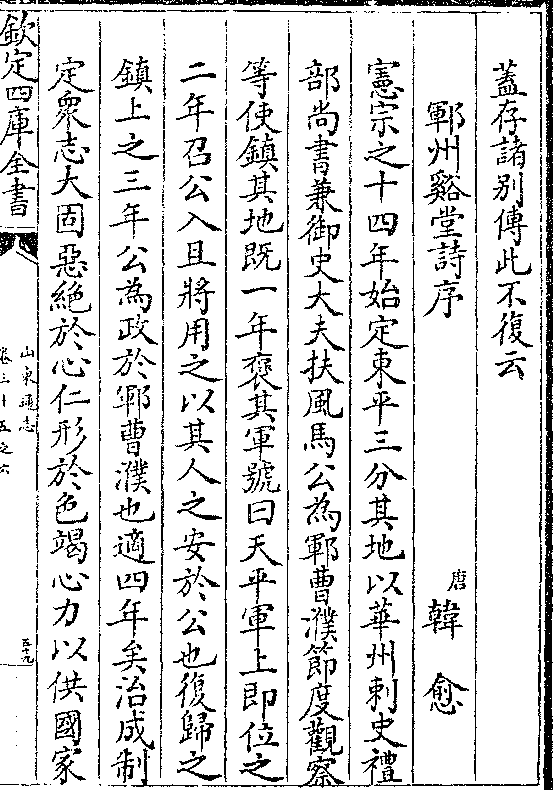 蓋存諸别傳此不復云
鄆州谿堂詩序
唐
韓愈
憲宗之十四年始定東平三分其地以華州刺史禮
部尚書兼御史大夫扶風馬公為鄆曹濮節度觀察
等使鎮其地既一年褒其軍號曰天平軍上即位之
二年召公入且將用之以其人之安於公也復歸之
鎮上之三年公為政於鄆曹濮也適四年矣治成制
定衆志大固惡絶於心仁形於色竭心力以供國家
欽定四庫全書
山東通志
卷三十五之六
五十九